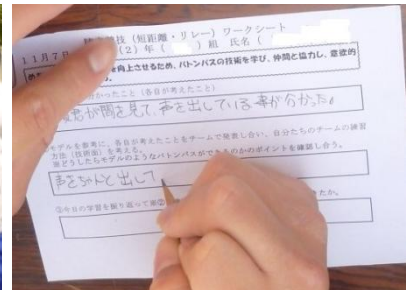 技（短距離・リレー）ワークシート
11月7日
（2）年（ ）組 氏名（
を向上させるため、バトンパスの技術を学び、仲間と協力し、意欲的
かったこと（各自が考えたこと）
が間を見て、声を出している事が分かった。
モデルを参考に、各自が考えたことをチームで発表し合い、自分たちのチームの練習
方法（技術面）を考える。
どうしたらモデルのようなバトンパスができるのかのポイントを確認し合う。
声をちゃんと出して
③今日の学習を振り返って
たか。